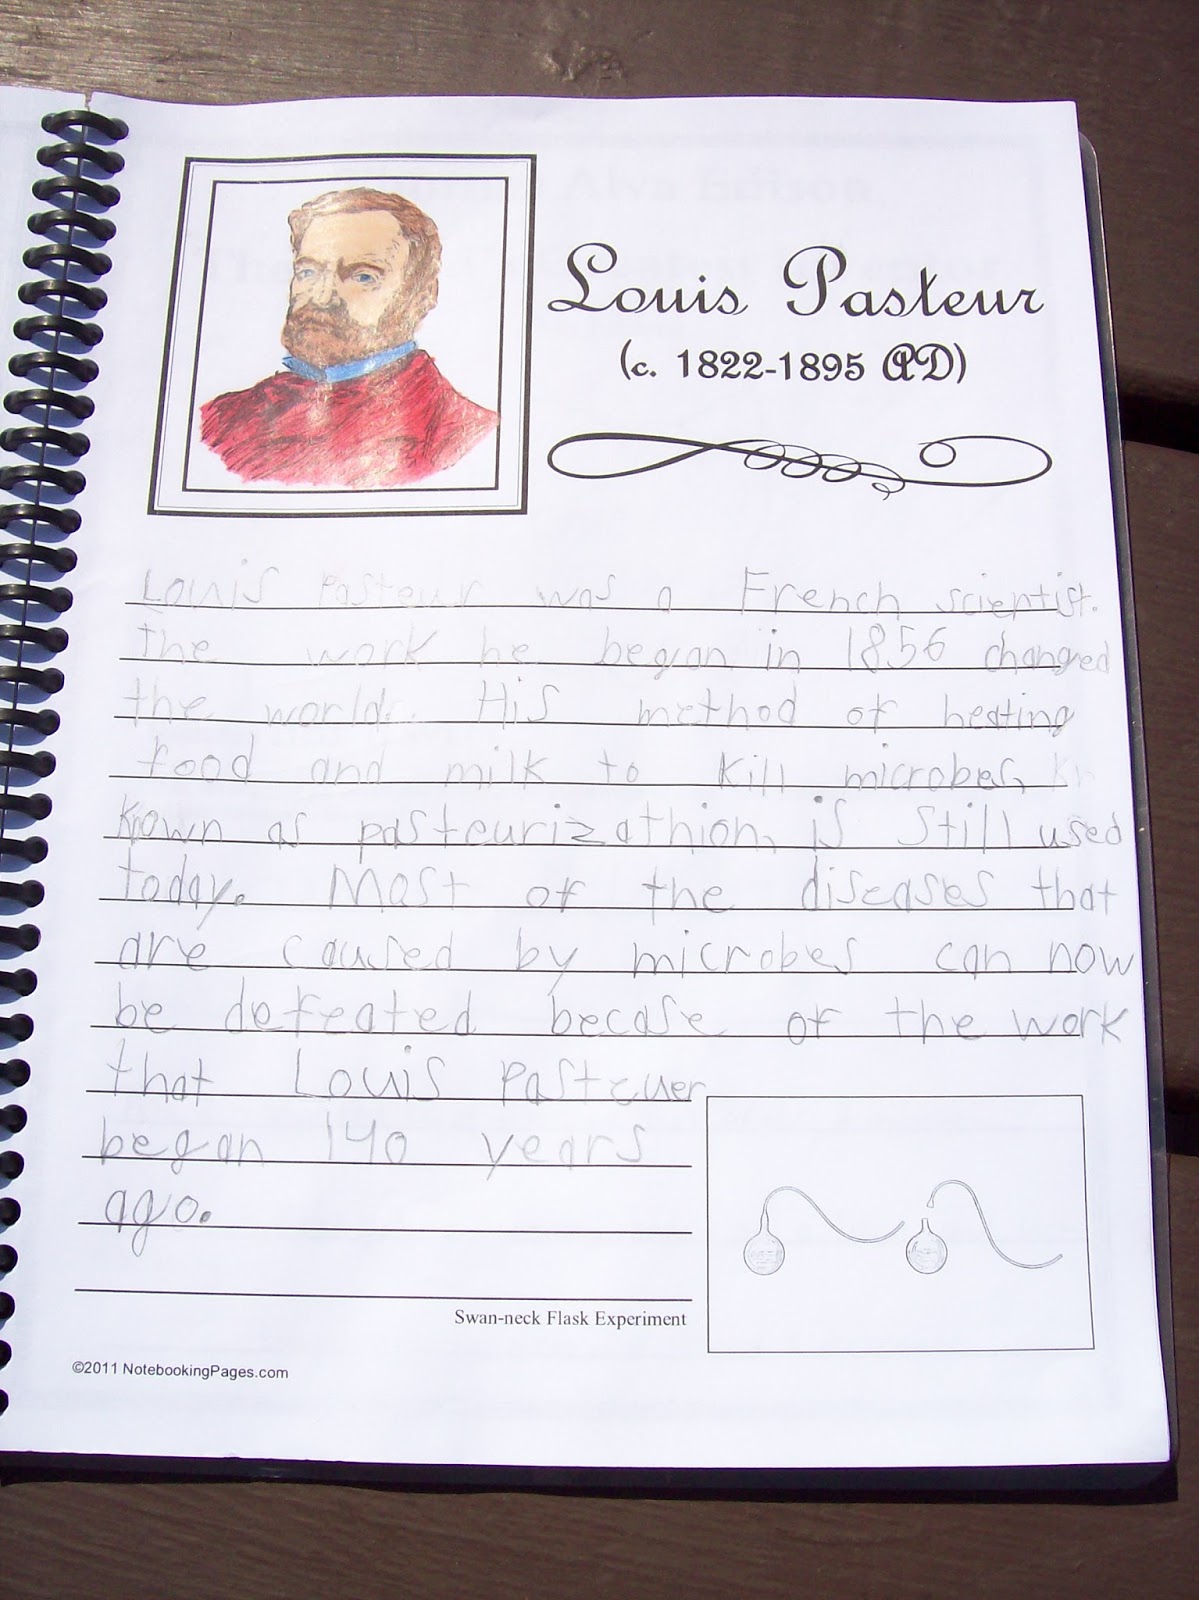 Louis Pasteur
(c. 1822-1895 AD)
Louis Pasteur was a French scientist.
The work he began in 1856 changed
the world. His method of heating
food and milk to kill microbes,
known as pasteurizathion, is still used
today. Most of the diseases that
are caused by microbes can now
be defeated becase of the work
that Louis Pasteuer
began 140 years
ago.
Swan-neck Flask Experiment
©2011 NotebookingPages.com